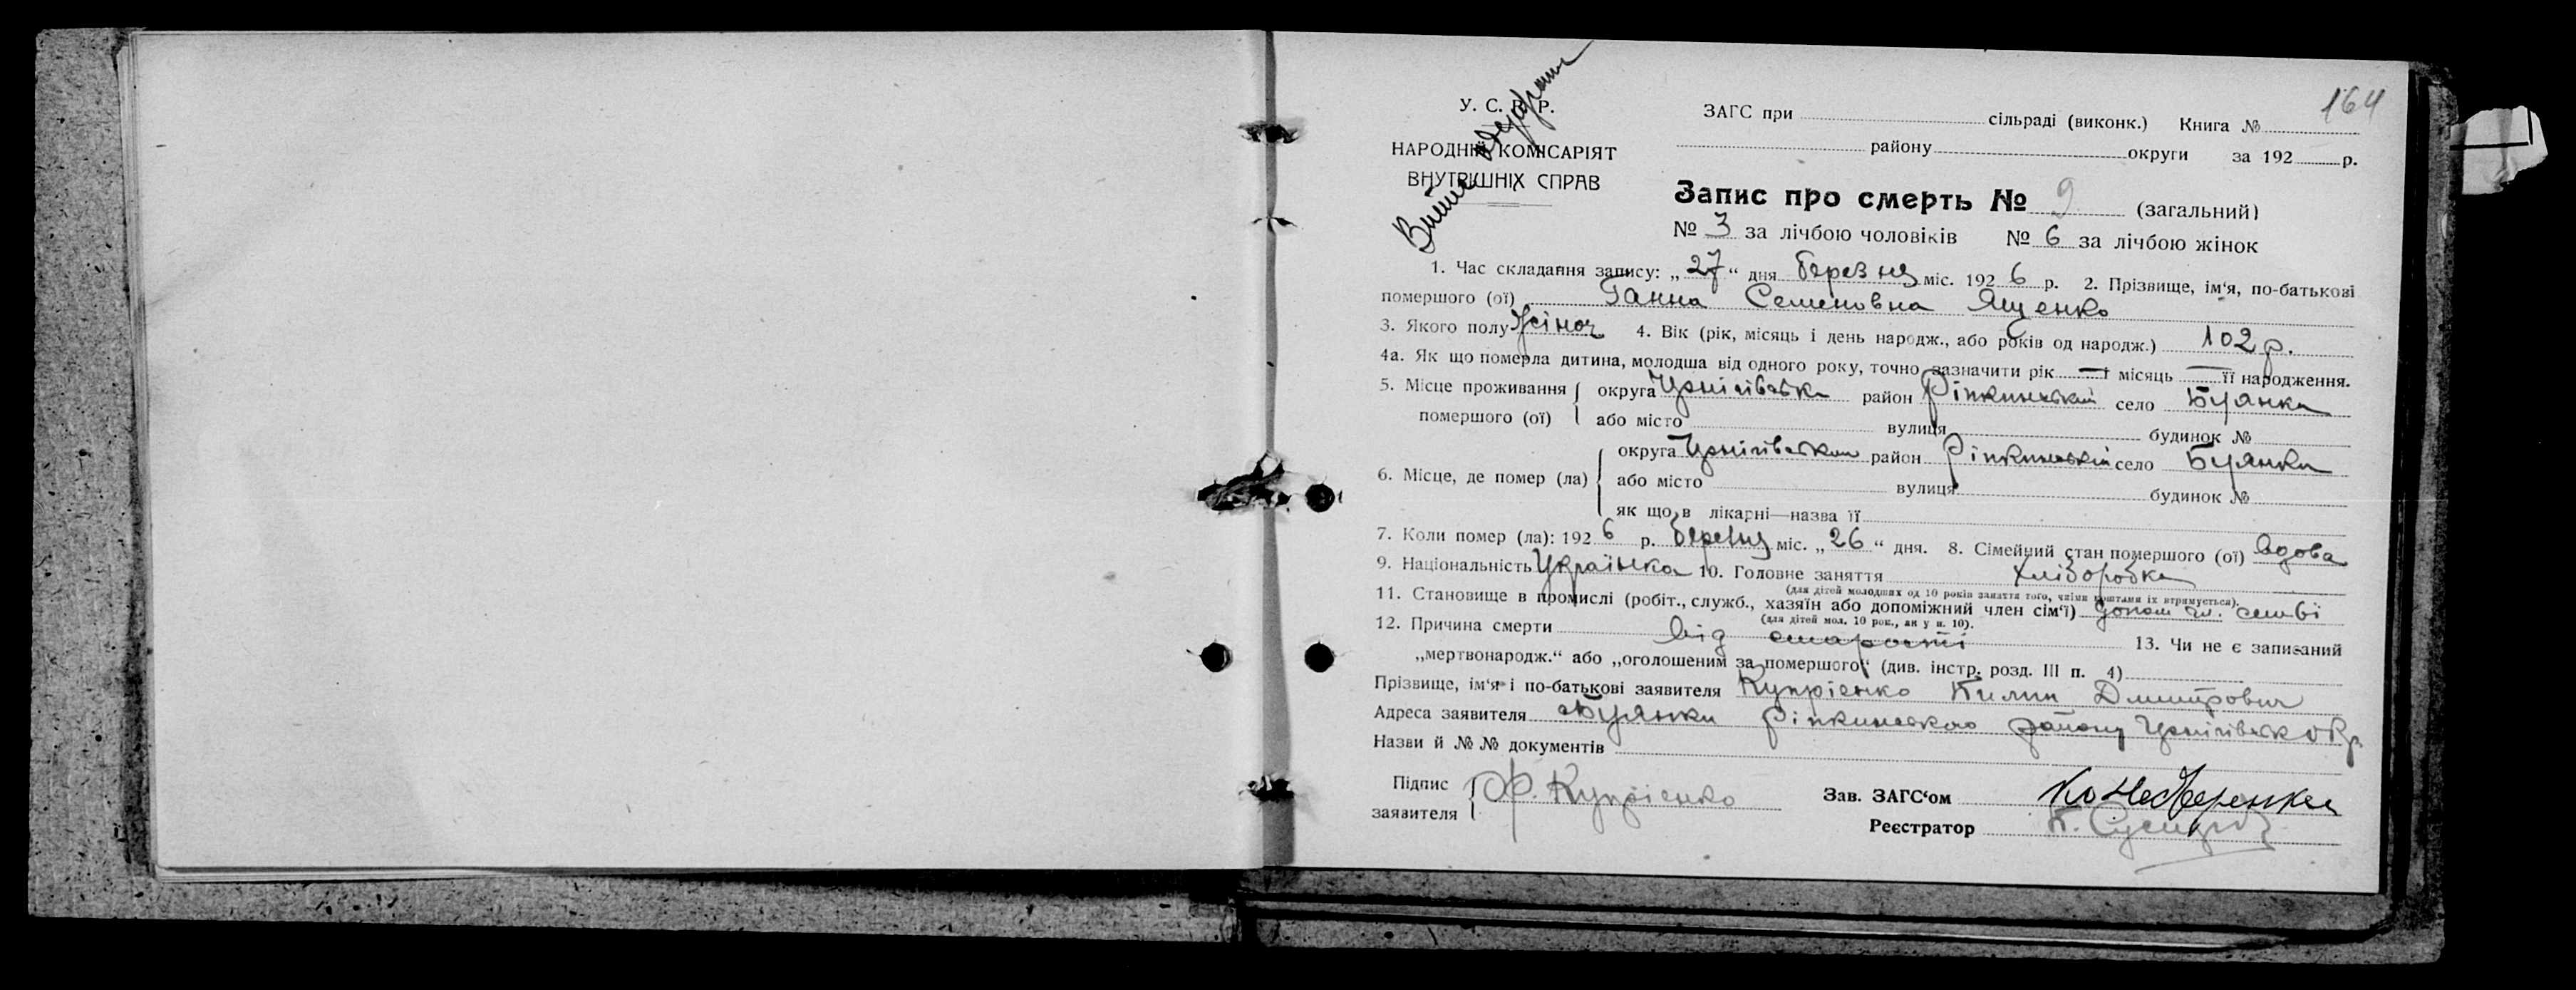 164
У. С. Р. Р.
НАРОДНІЙ КОМІСАРІЯТ
ВНУТРІШНІХ СПРАВ
ЗАГС при сільраді (виконк.) Книга №
району округи за 192 р.
Запис про смерть № 9 (загальний)
№ 3 за лічбою чоловіків № 6 за лічбою жінок
1. Час складання запису: „27“ дня березня міс. 1926 р. 2. Прізвище, ім‘я, по-батькові
помершого (ої) Ганна Семеновна Ященко
3. Якого полу жіноч 4. Вік (рік, місяць і день народж., або років од народж.) 102 р.
4а. Як що померла дитина, молодша від одного року, точно зазначити рік — і місяць — її народження.
5. Місце проживання помершого (ої) { округа Чернігівська район Ріпкинський село Буянки
або місто вулиця будинок №
6. Місце, де помер (ла) { округа Чернігівська район Ріпкинський село Буянки
або місто вулиця будинок №
як що в лікарні—назва її
7. Коли помер (ла): 1926 р. березня міс. „26“ дня. 8. Сімейний стан помершого (ої) вдова
9. Національність Українка 10. Головне заняття хліборобка
(для дітей молодших од 10 років заняття того, чиїми коштами їх втримується).
11. Становище в промислі (робіт., служб., хазяїн або допоміжний член сім‘ї) допом чл. семьї
(для дітей мол. 10 рок., як у п. 10).
12. Причина смерти від старости 13. Чи не є записаний
„мертвонародж.“ або „оголошеним за помершого“ (див. інстр. розд. III п. 4)
Прізвище, ім‘я і по-батькові заявителя Купрієнко Дмитрович
Адреса заявителя с Буянки Ріпкинського району Чернігівск окр.
Назви й №№ документів
Підпис заявителя { Ф. Купрієнко
Зав. ЗАГС‘ом
Реєстратор